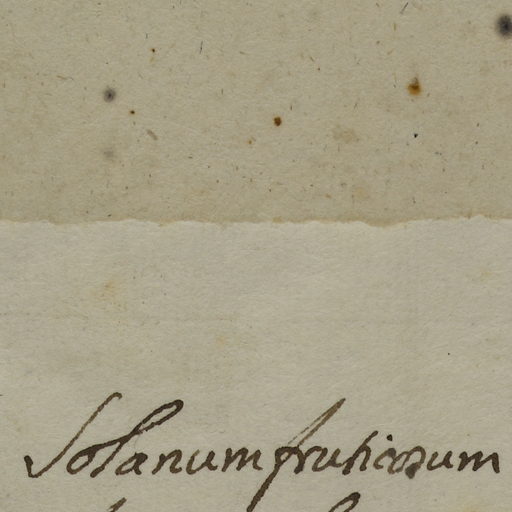 Solanum fruticosum